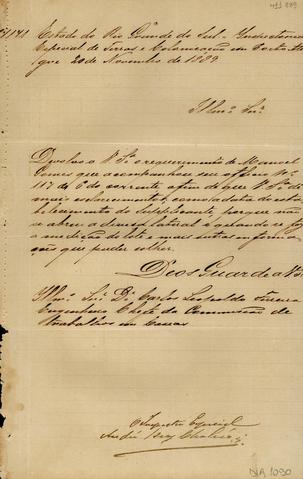 411 889
Estado do Rio Grande do Sul. Inspectoria
Especial de Terras e Colonisação em Porto Ale
gre 20 de Novembro de 1889
Illmo. Snr.
Devolvo a V. Sa. o requerimento de Manuel
Gomes que acompanhou seu officio No.
187 de 6 do corrente afim de que V. Sa.
mais esclarecimentos, como a data do esta
belecimento do Supplicante, porque não
se abreu a lateral e quando se fez
a medição do lote e as outras informa
ções que puder colher.
Deos Guarde a V. Sa.
Illmo. Snr. Dr. Carlos Leopoldo
Engenheiro Chefe da Commissão de
trabalhos em Caxias
O Inspector Especial
DIA 1090